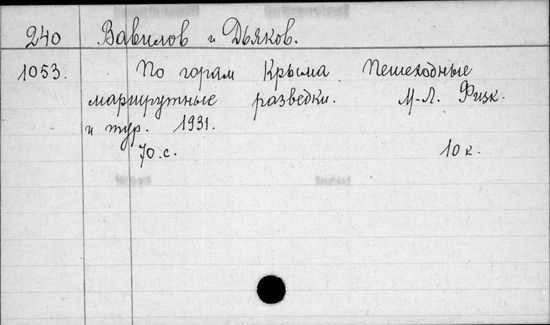 240 Вавилов и Дьяков.
1053. По горам Крыма Пешеходные
маршрутные разведки. М-Л. Физк.
и тур. 1931.
70.с. 10 к.